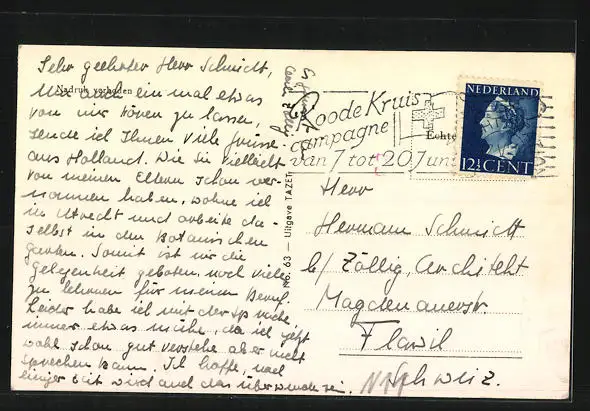 Sehr geehrter Herr Schmidt,
Nadruk verboden
Um auch einmal etwas
von mir hören zu lassen,
sende ich Ihnen viele Grüsse
aus Holland. Die Sie vielleicht
von meinen Eltern schon ver-
nommen haben, wohne ich
in Utrecht und arbeite da-
selbst in den Botanischen
Garten. Somit ist mir die
Gelegenheit geboten, noch vieles
zu lernen für meinen Beruf.
Leider habe ich mit der Sprache
immer etwas mühe, da ich jetzt
wohl schon gut verstehe aber nicht
sprechen kann. Ich hoffe, nach
einiger Zeit wird auch das überwunden sein.
No. 63 — Uitgave TAZET
Roode Kruis
campagne
van 7 tot 20 Juni
Echte
NEDERLAND
12½ CENT
Herr
Hermann Schmidt
b/ Zöllig, Architekt
Magdenauerstr.
Flawil
Schweiz.